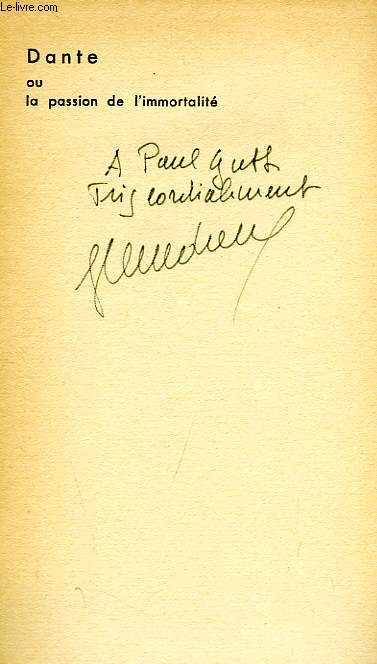 © Le-livre.com
Dante
ou
la passion de l'immortalité
A Paul Guth
Très cordialement